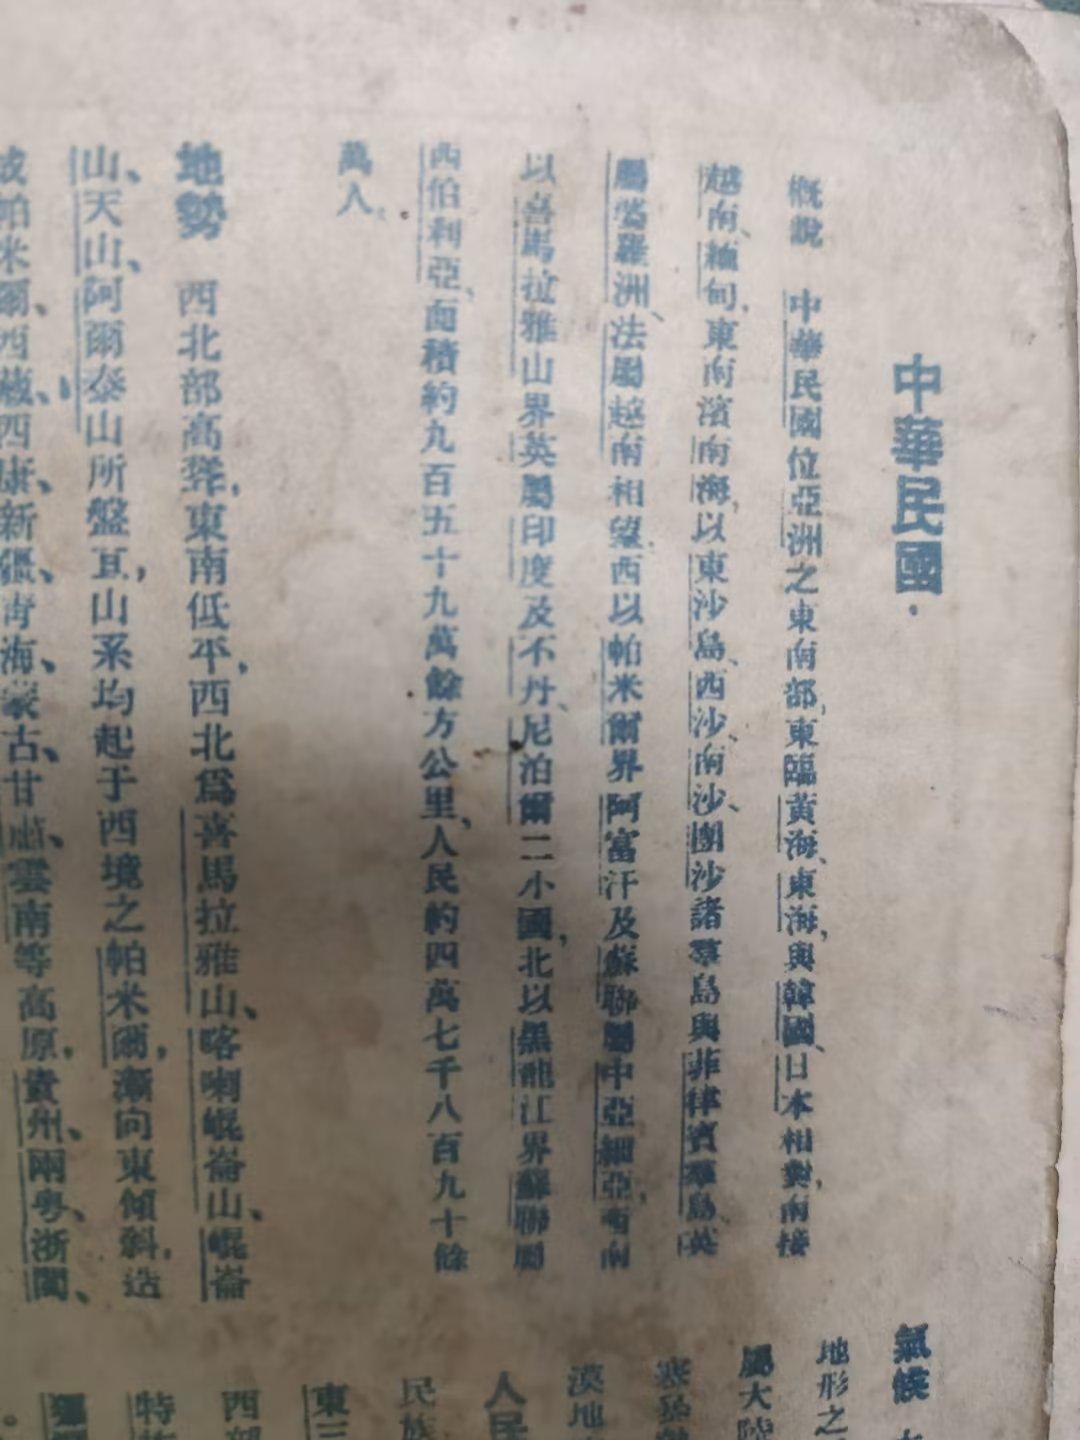 中華民國.
概說　中華民國位亞洲之東南部,東臨黃海、東海,與韓國、日本相對,南接
越南、緬甸,東南濱南海,以東沙島、西沙、南沙、團沙諸羣島與菲律賓羣島、英
屬婆羅洲、法屬越南相望,西以帕米爾界阿富汗及蘇聯屬中亞細亞,西南
以喜馬拉雅山界英屬印度及不丹、尼泊爾二小國,北以黑龍江界蘇聯屬
西伯利亞,面積約九百五十九萬餘方公里,人民約四萬七千八百九十餘
萬人.
地勢　西北部高聳,東南低平,西北爲喜馬拉雅山、喀喇崐崙山、崐崙
山、天山、阿爾泰山所盤互,山系均起于西境之帕米爾,漸向東傾斜,造
成帕米爾、西藏、西康、新疆、青海、蒙古、甘肅、雲南等高原,貴州、兩粤、浙閩、
氣候
地形之
屬大陸
漠地
人民
民族
東三
西部
特